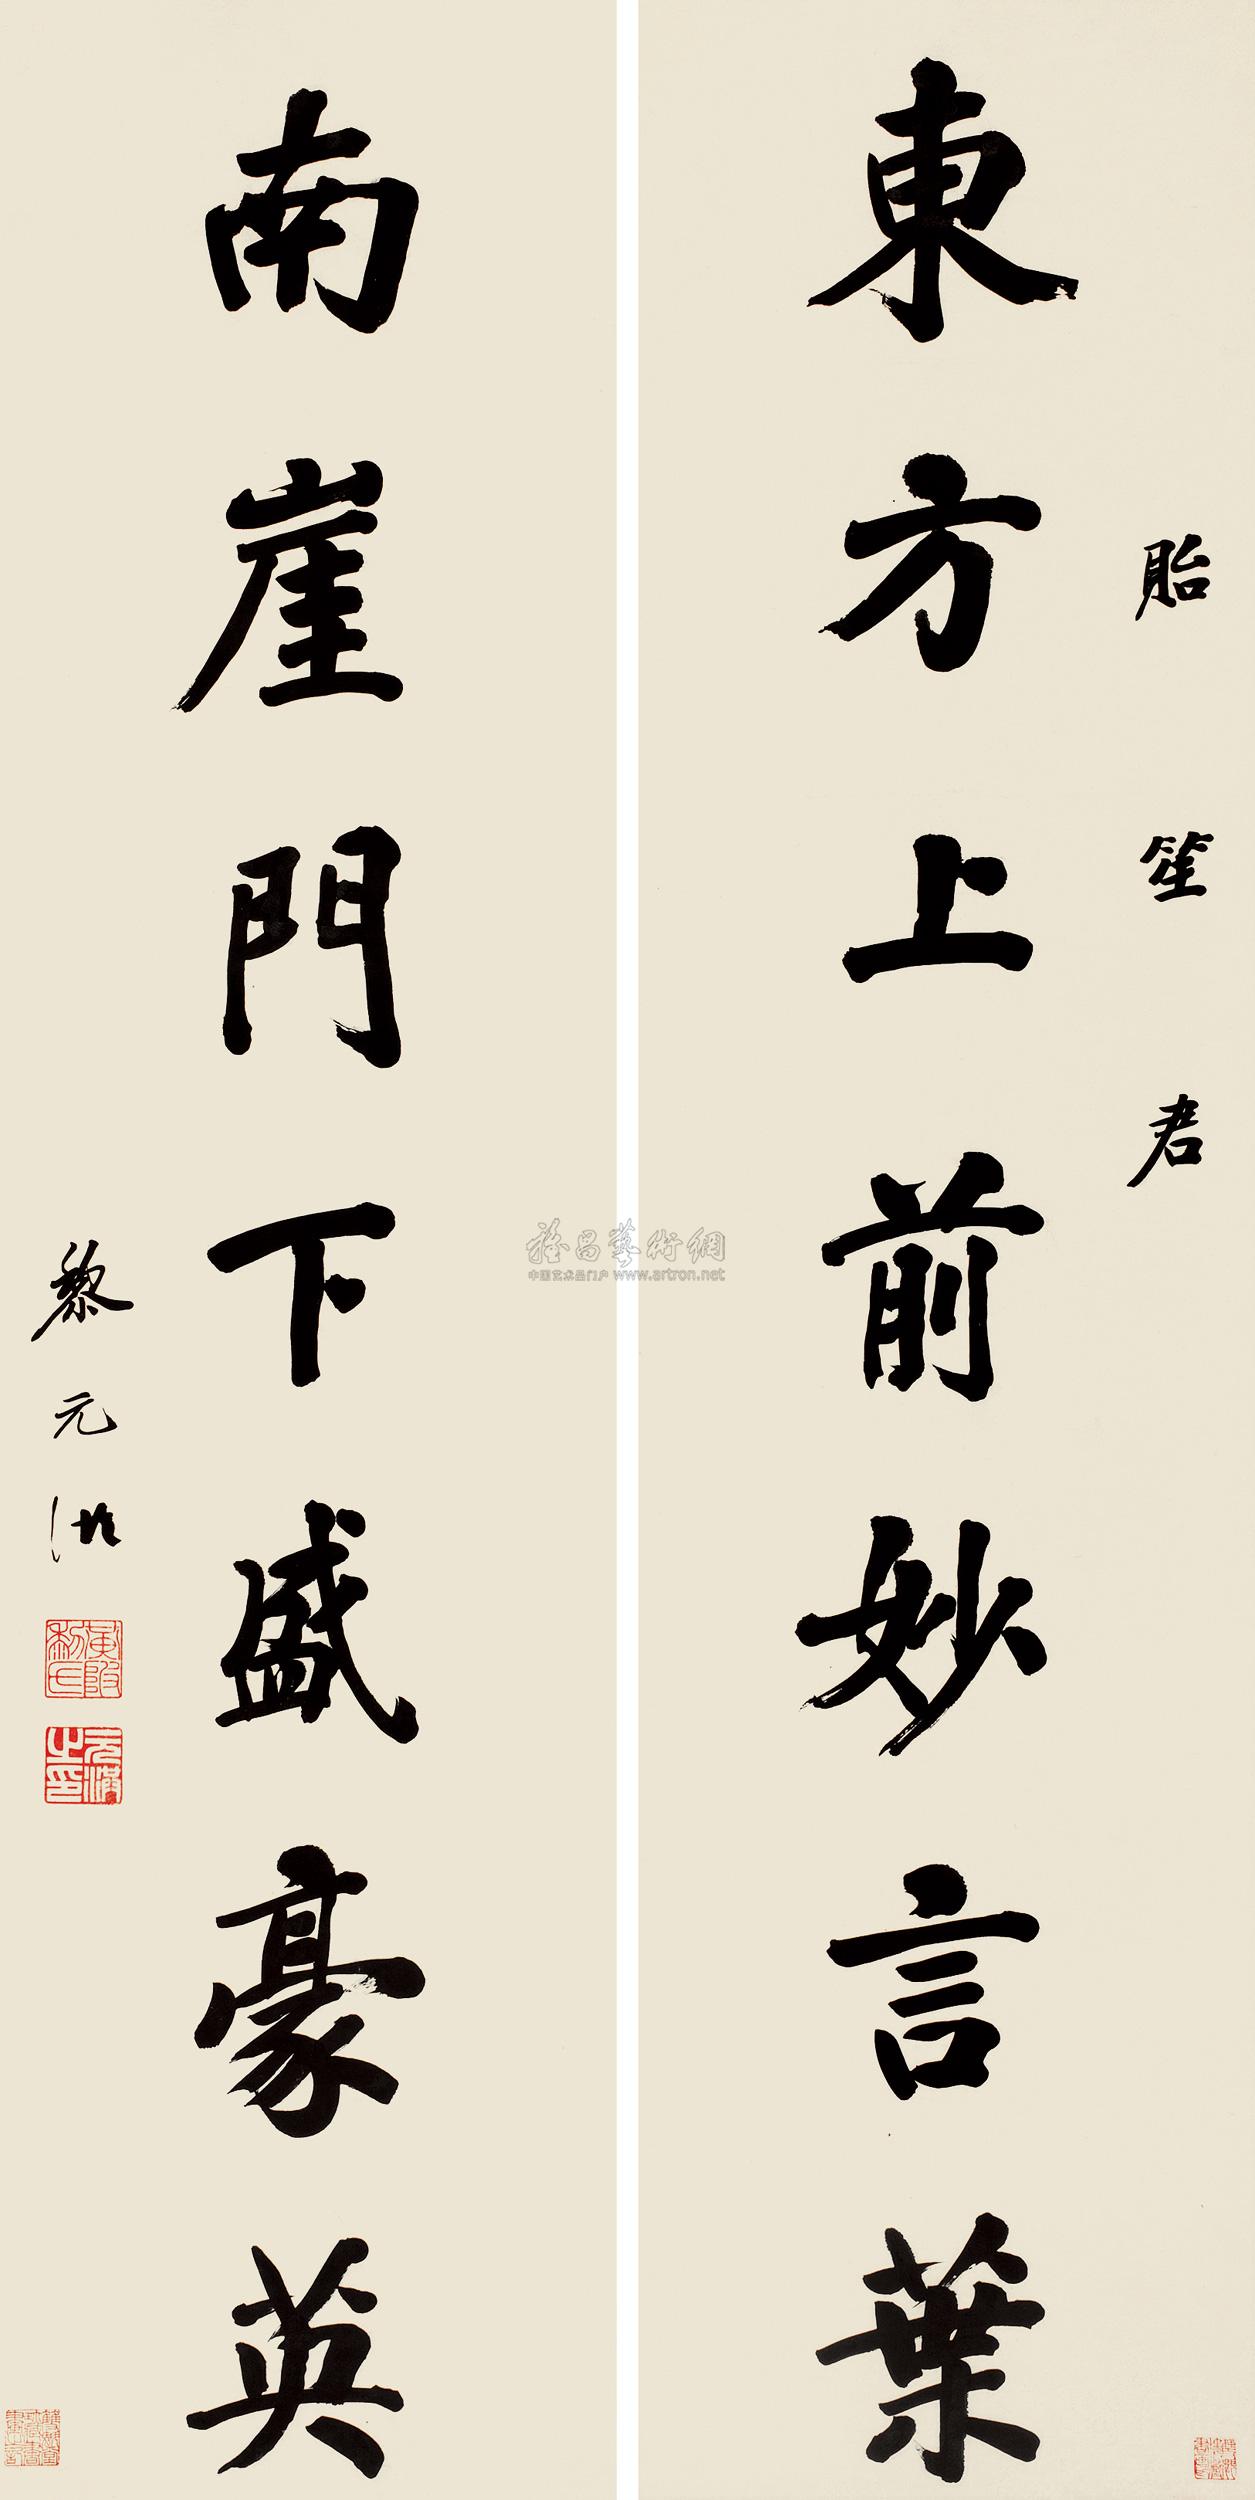 貽笙君
東方上前妙言葉
南崖門下盛豪英
黎元洪
黃陂黎氏
元洪之印
雅昌藝術網
中国艺术品门户 www.artron.net